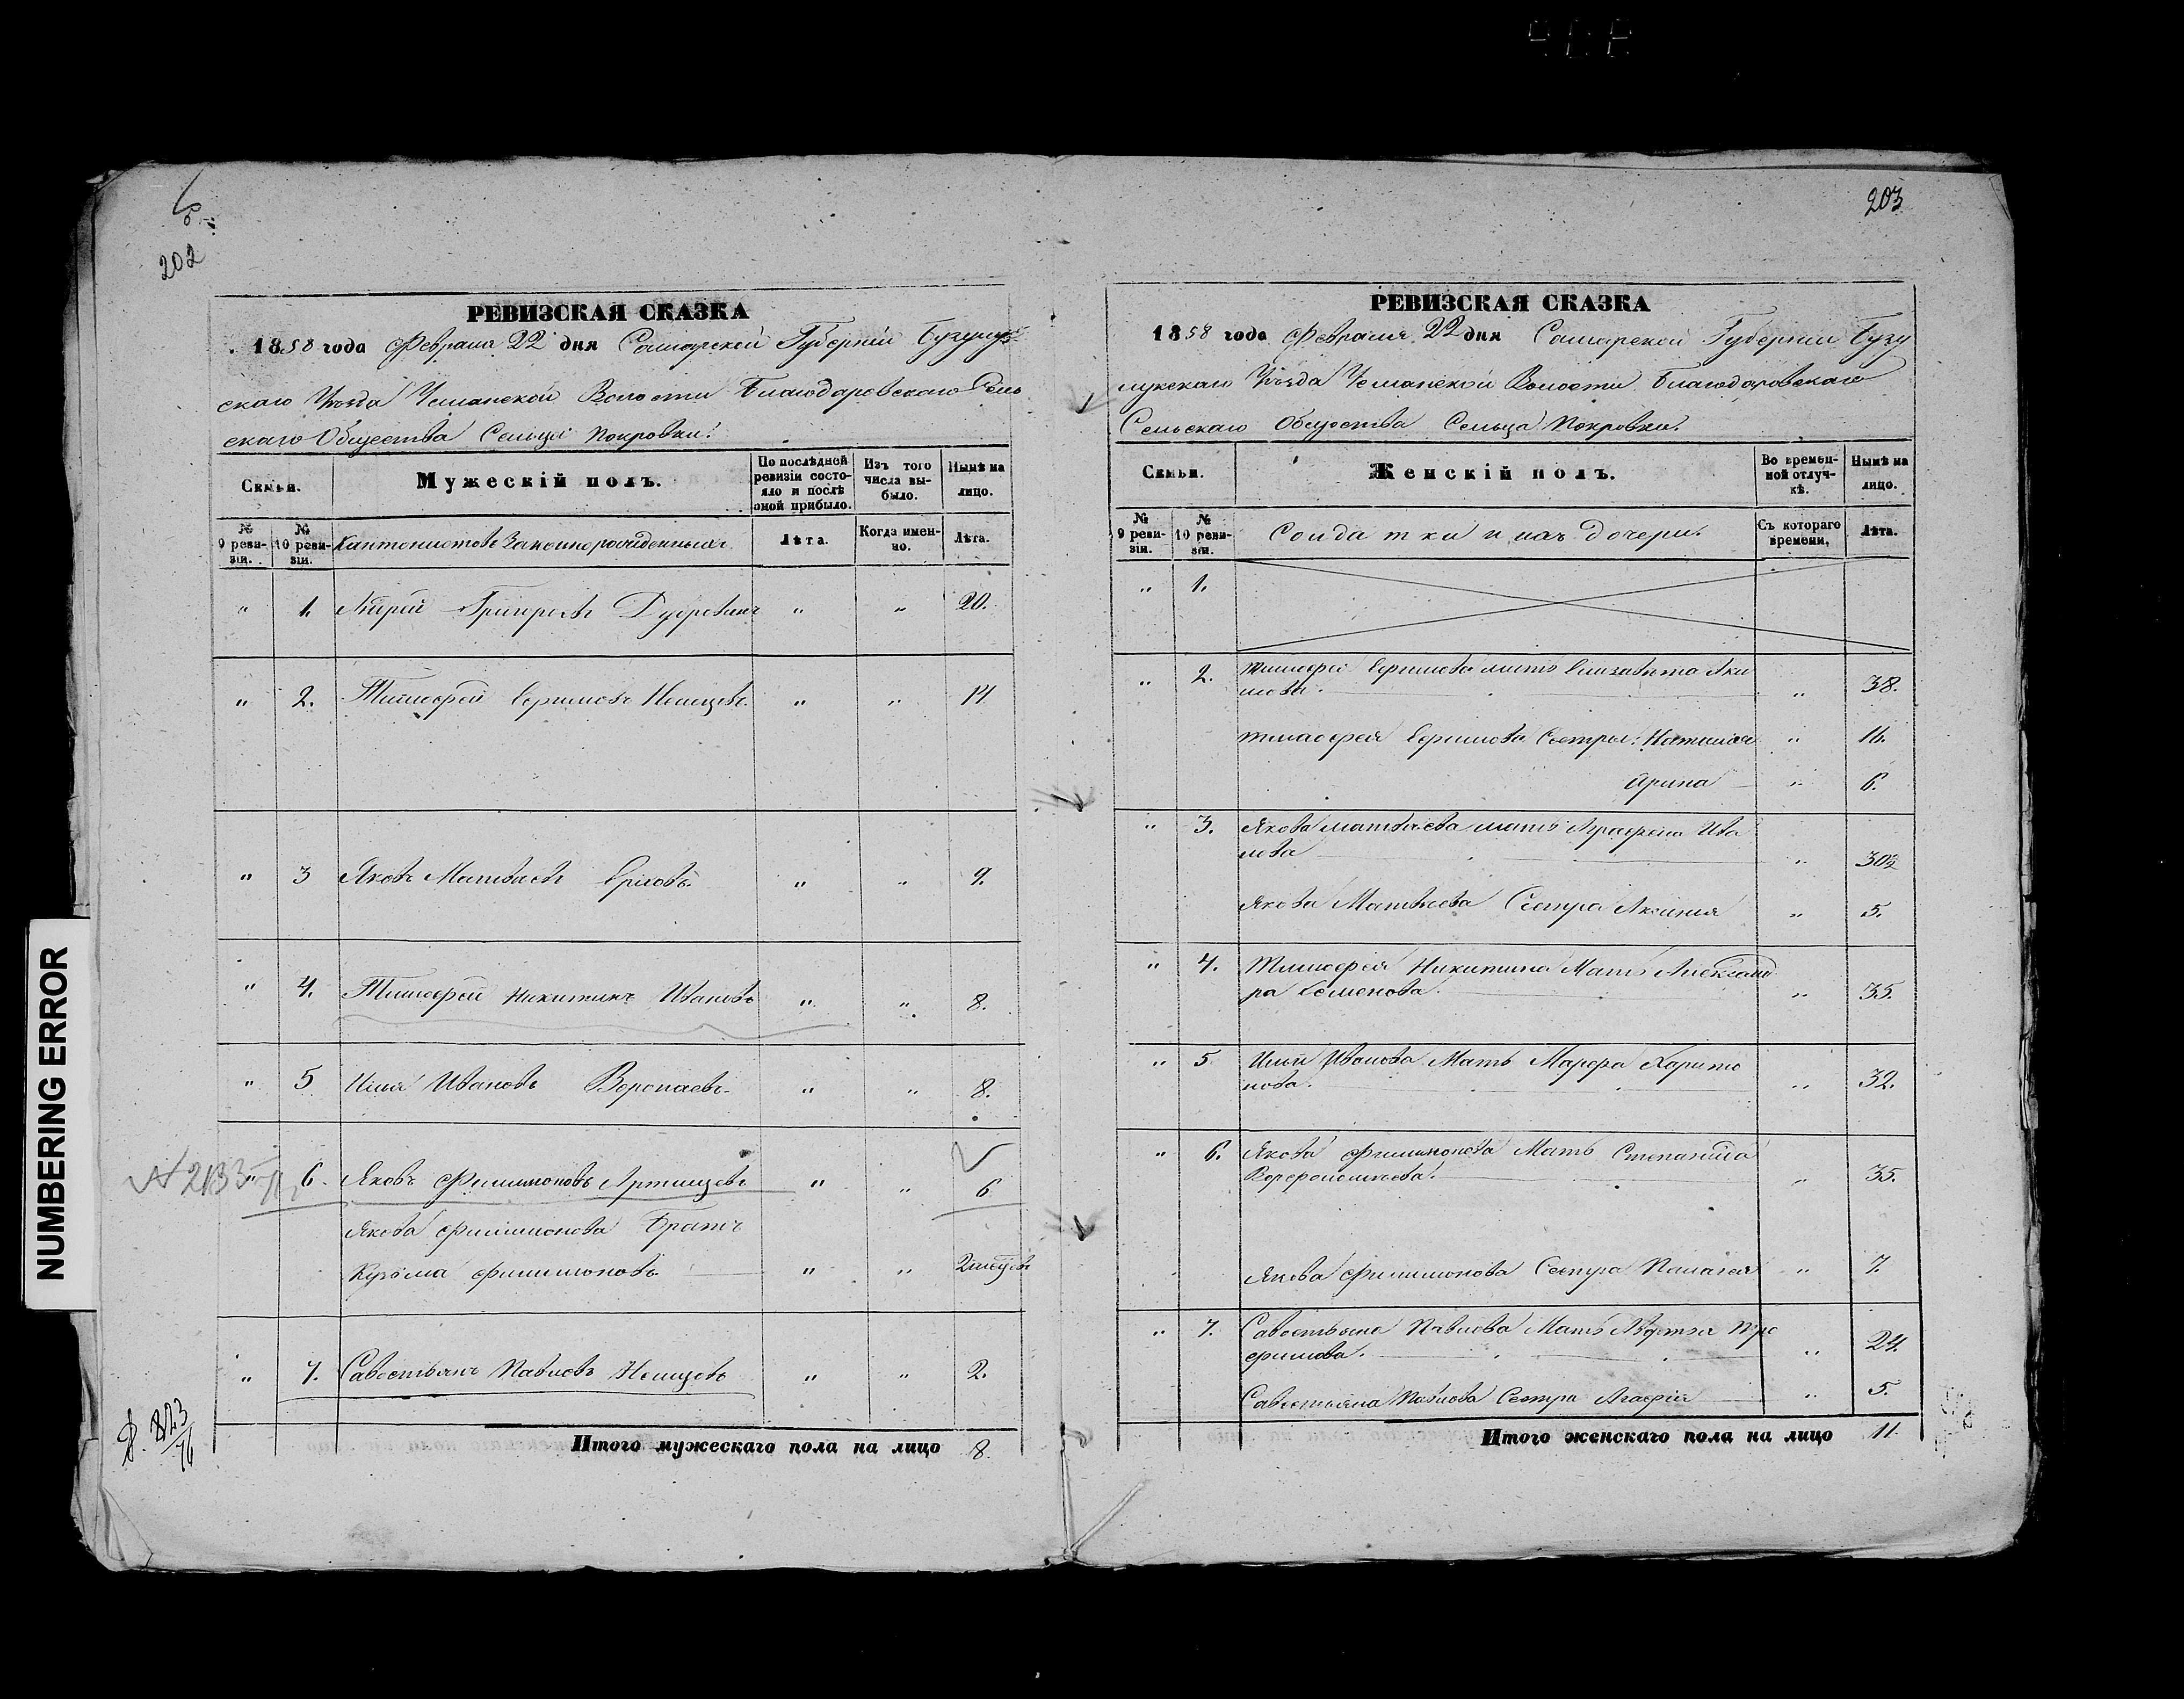 202
РЕВИЗСКАЯ СКАЗКА
1858 года Февраля 22 дня Самарской Губерніи Бузулук
скаго Уѣзда Чеманской Волости Благодаровскаго Сель
скаго Общества Сельца Покровки.
Семьи.
Мужескій полъ.
По послѣдней ревизіи состояло и послѣ оной прибыло.
Изъ того числа выбыло.
Нынѣ на лицо.
№ 9 ревизіи.
№ 10 ревизіи.
Кантонистовъ Законнорожденныхъ
Лѣта.
Когда именно.
Лѣта.
" 1. Григорьевъ " " 20.
" 2. Тимофей Ефимовъ Немцевъ " " 14
" 3 Яковъ Матвѣевъ " " 9.
" 4. Тимофей Никитинъ Ивановъ " " 8.
" 5 Илья Ивановъ Воропаевъ " " 8.
" 6. Яковъ Филимоновъ Артищевъ " " 6
Якова Филимонова Братъ
Кузьма Филимоновъ " "
" 7. Савостьянъ Павловъ Немцовъ " " 2.
Итого мужескаго пола на лицо 8.
NUMBERING ERROR
203
РЕВИЗСКАЯ СКАЗКА
1858 года Февраля 22 дня Самарской Губерніи Бузу
лукскаго Уѣзда Чеманской Волости Благодаровскаго
Сельскаго Общества Сельца Покровки.
Семьи.
Женскій полъ.
Во временной отлучкѣ.
Нынѣ на лицо.
№ 9 ревизіи.
№ 10 ревизіи.
Солдатки и ихъ дочери.
Съ котораго времени.
Лѣта.
" 1.
" 2. Тимофея Ефимова мать Елизавета Яки
мова. " 38.
Тимофея Ефимова Сестры: Наталья " 16.
Арина " 6.
" 3. Якова Матвѣева мать Аграфена Ива
нова "
Якова Матвѣева Сестра Аксинья " 5.
" 4. Тимофея Никитина Мать Александ
ра Семенова. " 35.
" 5 Ильи Иванова Мать Марфа Харито
нова. " 32.
" 6. Якова Филимонова Мать Степанида
Ворфоломѣева. " 35.
Якова Филимонова Сестра Палагея " 7.
" 7. Савостьяна Павлова Мать Авдотья Тро
фимова. " 24.
Савостьяна Павлова Сестра Агафія " 5.
Итого женскаго пола на лицо 11.